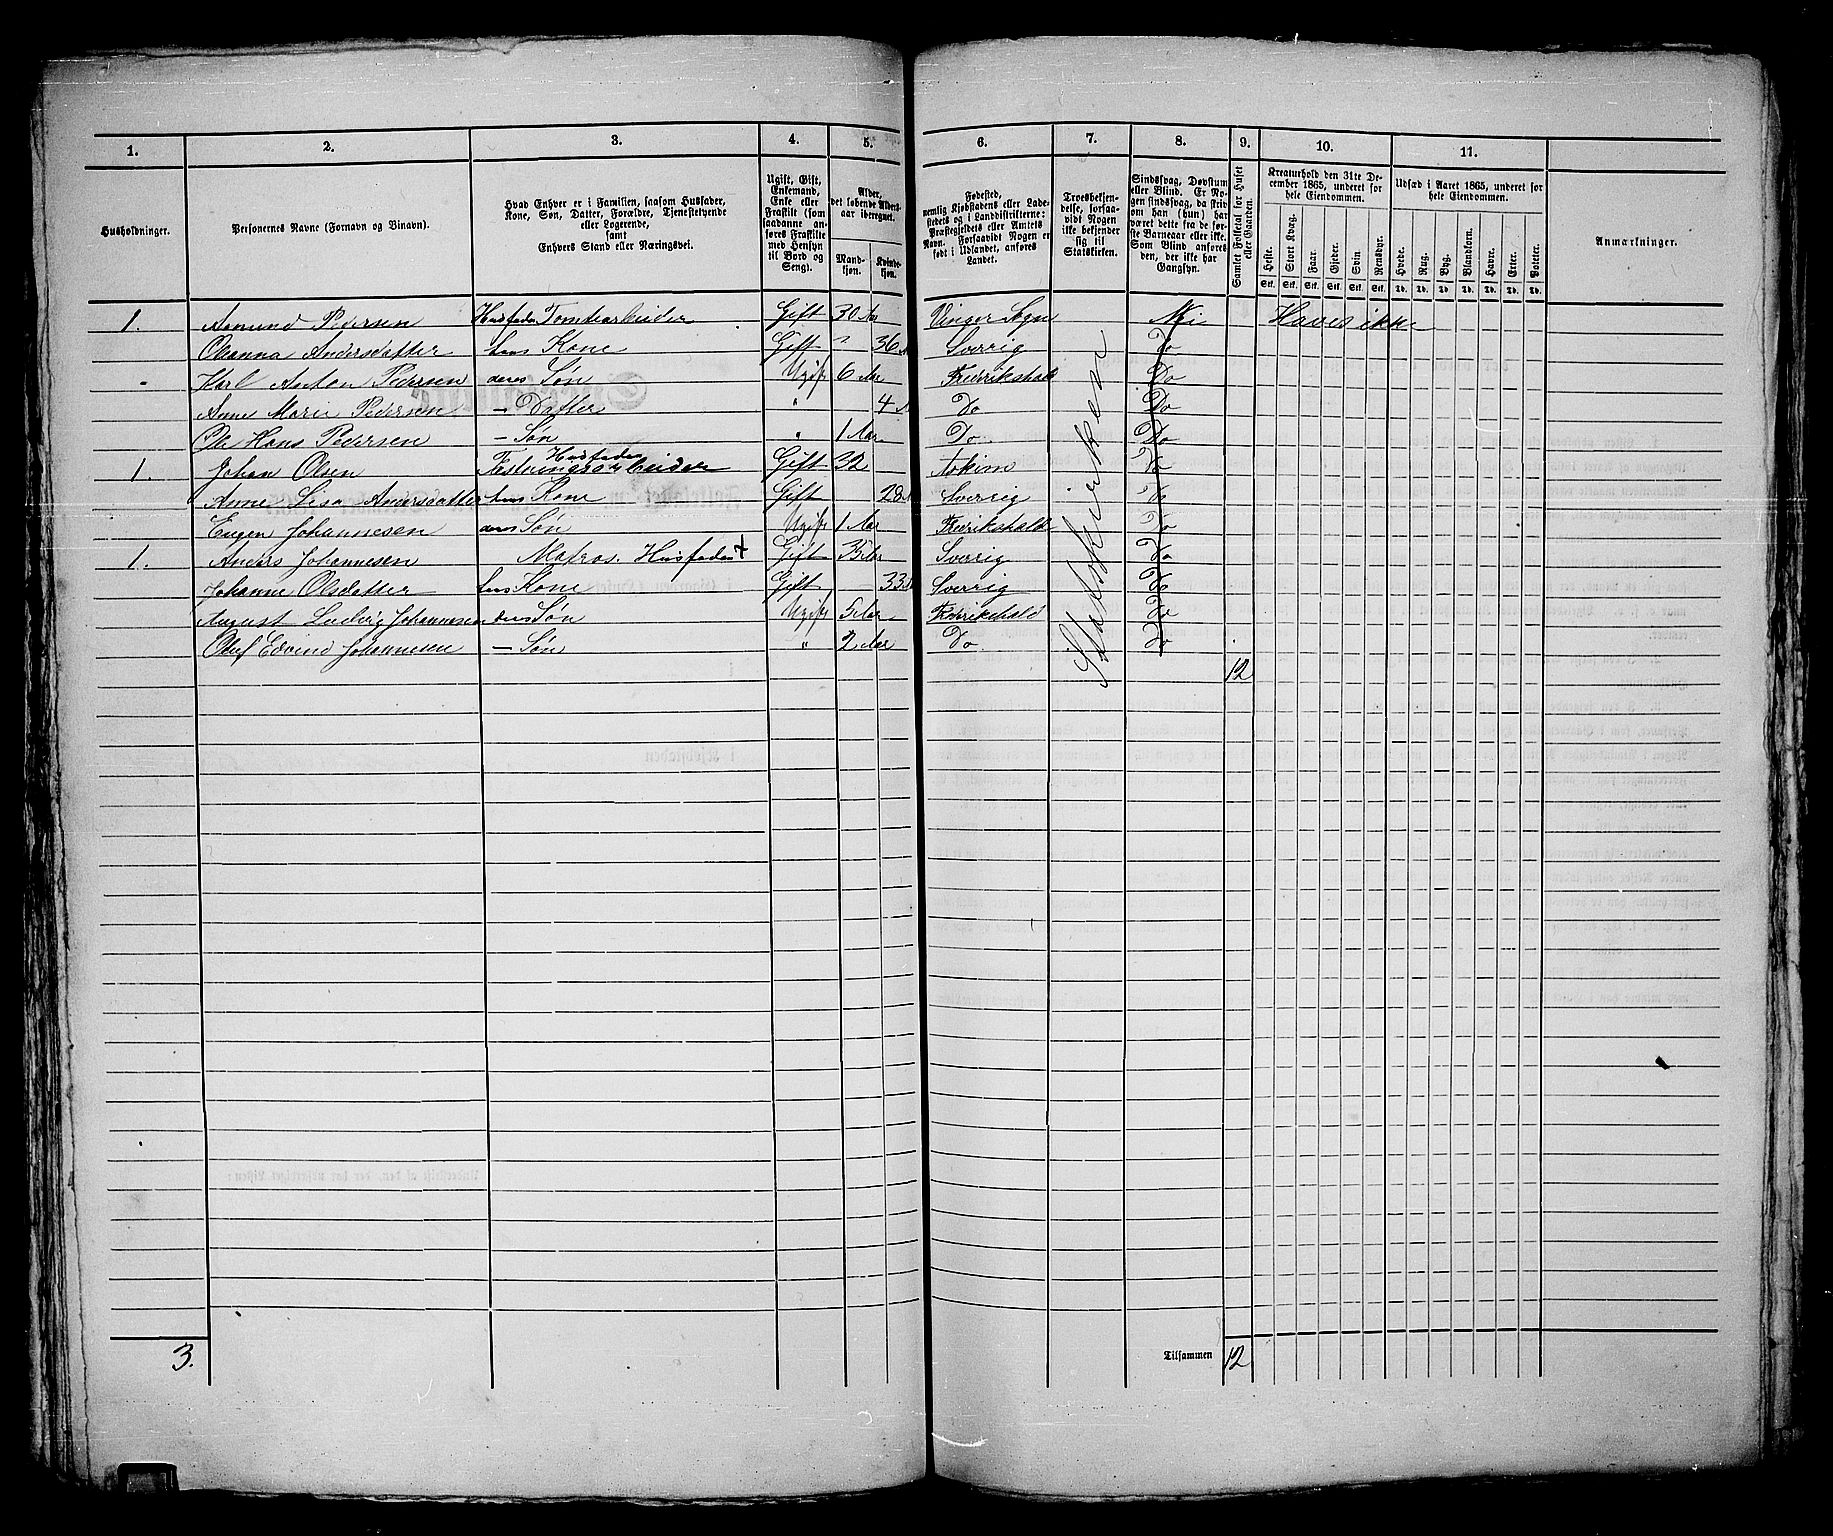 1. 2. 3. 4. 5. 6. 7. 8. 9. 10. 11.
Husholdninger.
Personernes Navne (Fornavn og Binavn).
Hvad Enhver er i Familien, saasom Husfader, Kone, Søn, Datter, Forældre, Tjenestetyende eller Logerende, samt Enhvers Stand eller Næringsvei.
Ugift, Gift, Enkemand, Enke eller Fraskilt (som saadanne anføres Fraskilte med Hensyn til Bord og Seng).
Alder, det løbende Alders-aar iberegnet.
Mandkjøn. Kvindekjøn.
Fødested, nemlig Kjøbstadens eller Ladestedets og i Landdistrikterne: Præstegjeldets eller Amtets Navn. Forsaavidt Nogen er født i Udlandet, anføres Landet.
Troesbekjendelse, forsaavidt Nogen ikke bekjender sig til Statskirken.
Sindssvag, Døvstum eller Blind. Er Nogen sindssvag, da skriv om han (hun) har været dette fra de første Barneaar eller ikke. Som Blind anføres den, der ikke har Gangsyn.
Samlet Folketal for Huset eller Gaarden.
Kreaturhold den 31te December 1865, underet for hele Eiendommen.
Heste. Stort Kvæg. Faar. Gjeder. Svin. Rensdyr.
Stk. Stk. Stk. Stk. Stk. Stk.
Udsæd i Aaret 1865, underet for hele Eiendommen.
Hvede. Rug. Byg. Blandkorn. Havre. Erter. Poteter.
Td. Td. Td. Td. Td. Td. Td.
Anmærkninger.
1. Amund Pedersen Husfader Tomtearbeider Gift 30 Aar Vinger Sogn Nei Haves ikke
Oleanna Andersdatter hans Kone Gift " 36 A Sverrig Do
Karl Anton Pedersen deres Søn Ugift 6 Aar Fredrikshald Do
Anne Marie Pedersen — Datter " 4 A Do Do
Ole Hans Pedersen — Søn " 1 Aar Do Do
1. Johan Olsen Husfader Fæstningsarbeider Gift 32 Askim Do
Anne Lisa Andersdatter hans Kone Gift 28 A Sverrig Do
Eugen Johannesen deres Søn Ugift 1 Aar Fredrikshald Do
1. Anders Johannesen Matros. Husfader + Gift 35 Aar Sverrig Do
Johanne Olsdatter hans Kone Gift — 33 A Sverrig Do
August Ludvig Johannesen deres Søn Ugift 5 Aar Fredrikshald Do
Oluf Edvind Johannesen — Søn " 2 Aar Do Do
Statskirken
12
3. Tilsammen 12